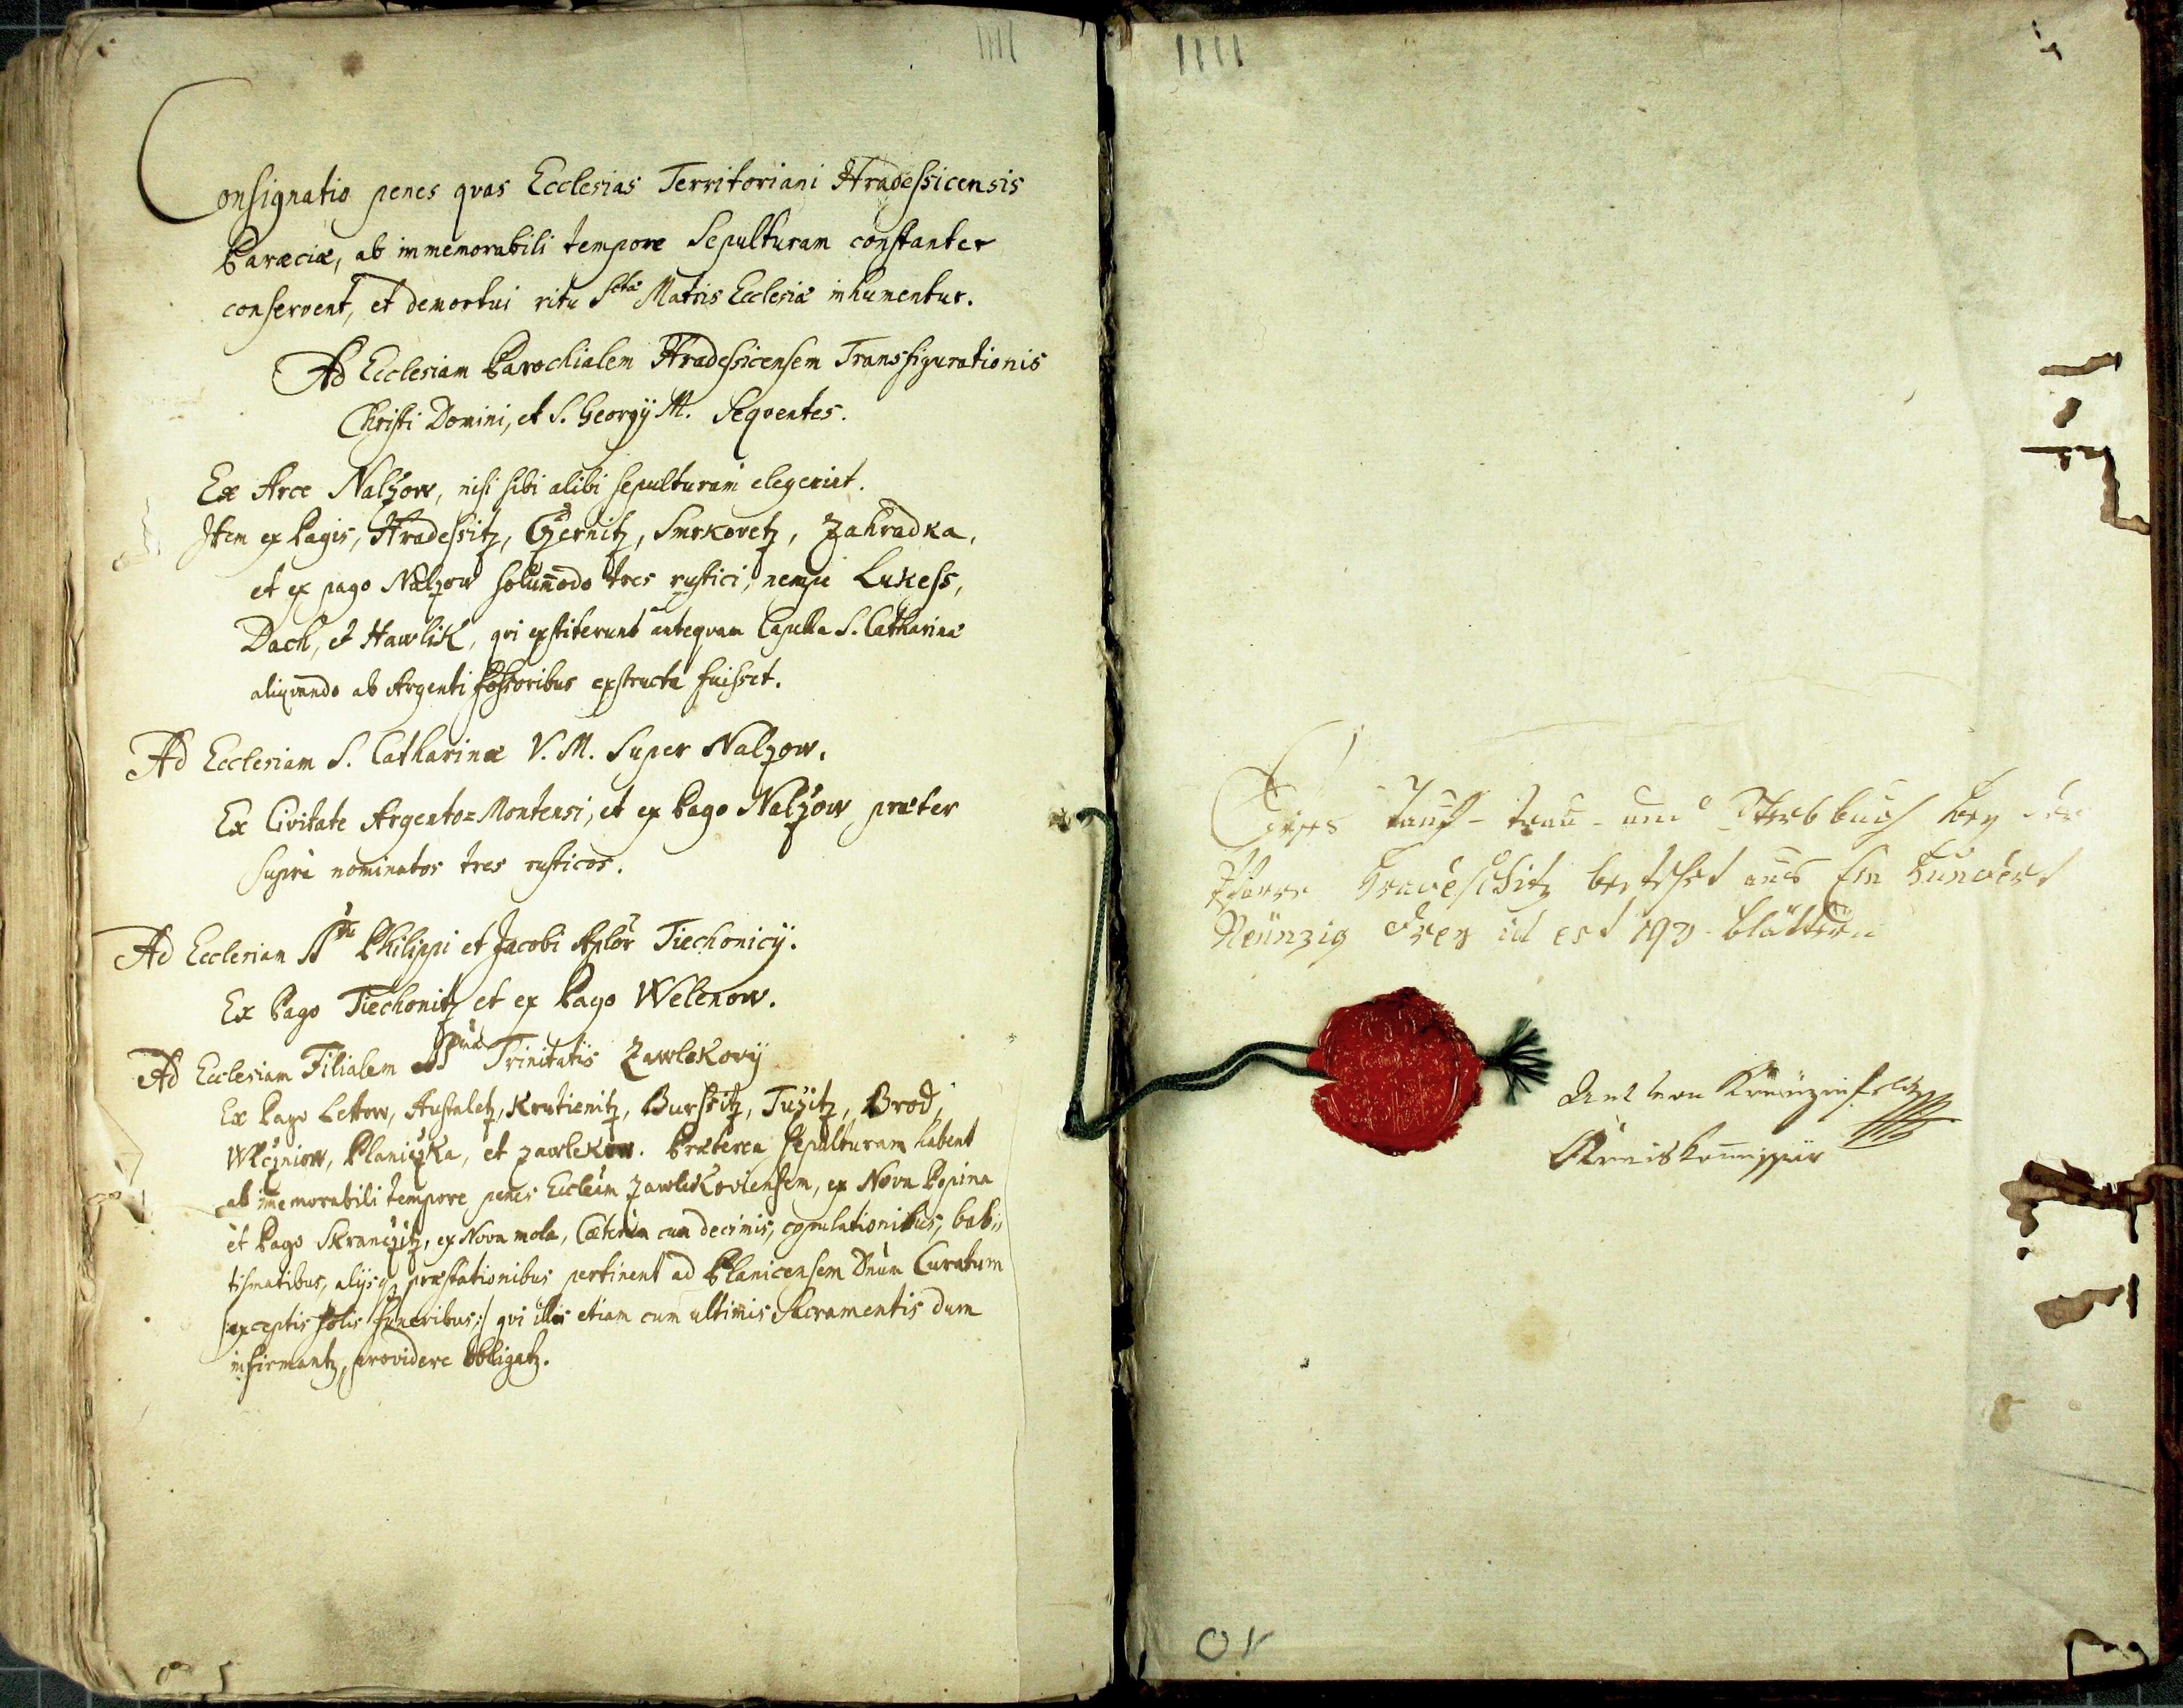 Consignatio penes qvas Ecclesias Territoriani Hradessicensis
Paræciæ, ab immemorabili tempore Sepulturam constanter
conservent, et demortui ritu Sctæ Matris Ecclesiæ inhumentur.
Ad Ecclesiam Parochialem Hradessicensem Transfigurationis
Christi Domini, et S. Georgÿ M. Seqventes.
Ex Arce Nalžow, nisi sibi alibi sepulturam elegerint.
Item ex Pagis, Hradessitz, Czernitz, Smrkovetz, Zahradka,
et ex pago Nalzow solum̄odo tres rustici, nempe Lukess,
Dach, et Hawlik, qvi exstiterunt anteqvam Capella S. Catharinæ
aliqvando ab Argenti fossoribus exstructa fuisset.
Ad Ecclesiam S. Catharinæ V. M. Super Nalzow.
Ex Civitate Argento=Montensi, et ex Pago Nalžow præter
supra nominatos tres rusticos.
Ad Ecclesiam SS Philippi et Jacobi Aplor Tiechonicÿ.
Ex Pago Tiechonitz et ex Pago Welenow.
Ad Ecclesiam Filialem SSmæ Trinitatis Zawlekovÿ
Ex Pago Lettow, Hustaletz, Krutienitz, Burssitz, Tužitz, Brod,
Wlczniow, Planiczka, et Zawlekow. Præterea sepulturam habent
ab im̄emorabili tempore penes Eccleām Zawlekoviensem, ex Nova Popina
et Pago Skranczitz, ex Nova mola, Cæterum cum decimis, copulationibus, bab=
tismatibus, alÿsq præstationibus pertinent ad Planicensem Dnum Curatum
exceptis solis funeribus:/ qvi illis etiam cum ultimis Sacramentis dum
infirmantz, providere obligatz.
Tauf- trau- und Sterbbuch bey der
Pfarr Hradeschitz bestehet aus Ein hundert
Neünzig drey id est 193 blättern
Kreiskommissär